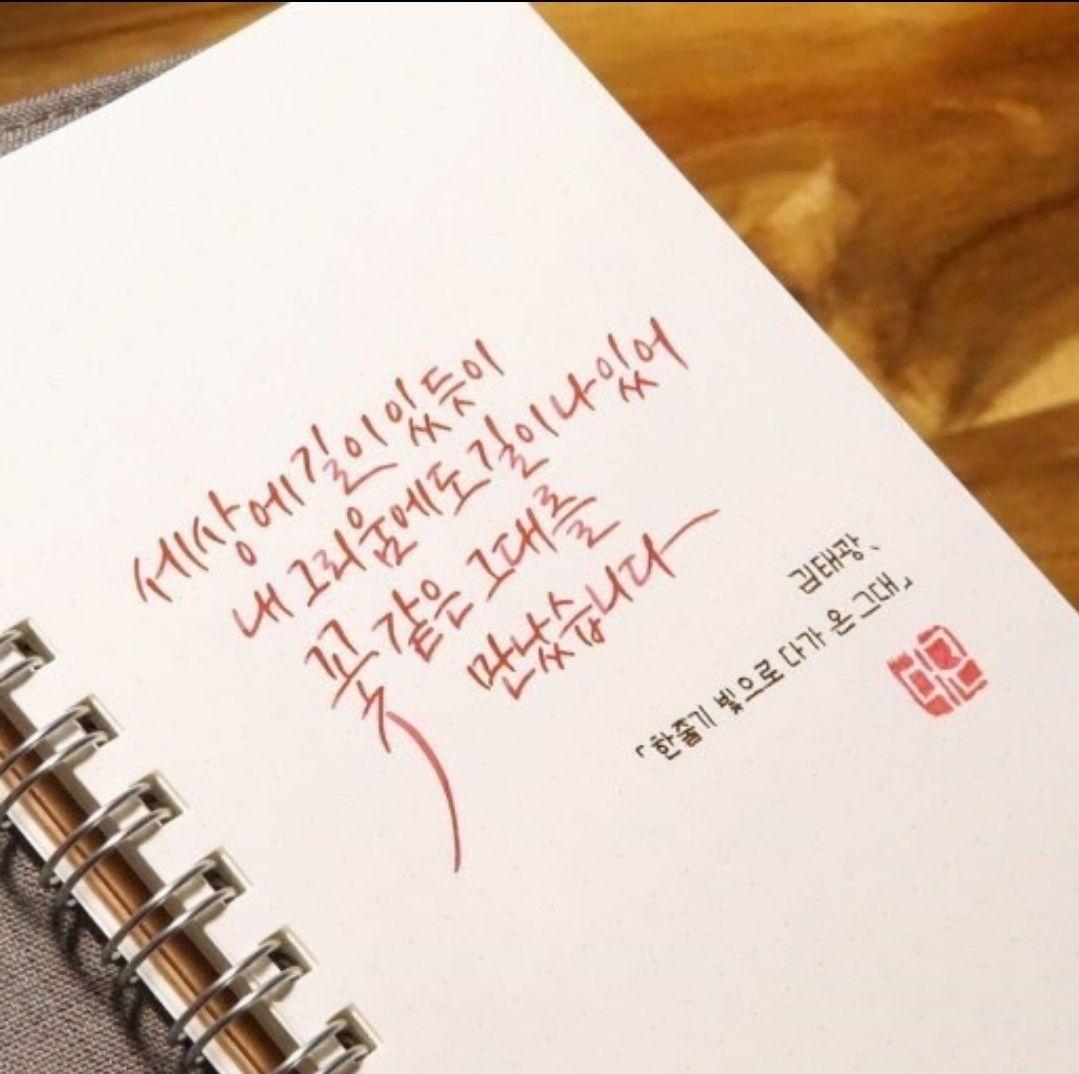 세상에 길이 있듯이
내 그리움에도 길이 나 있어
꽃 같은 그대를
만났습니다
김태광、
「한줄기 빛으로 다가 온 그대」